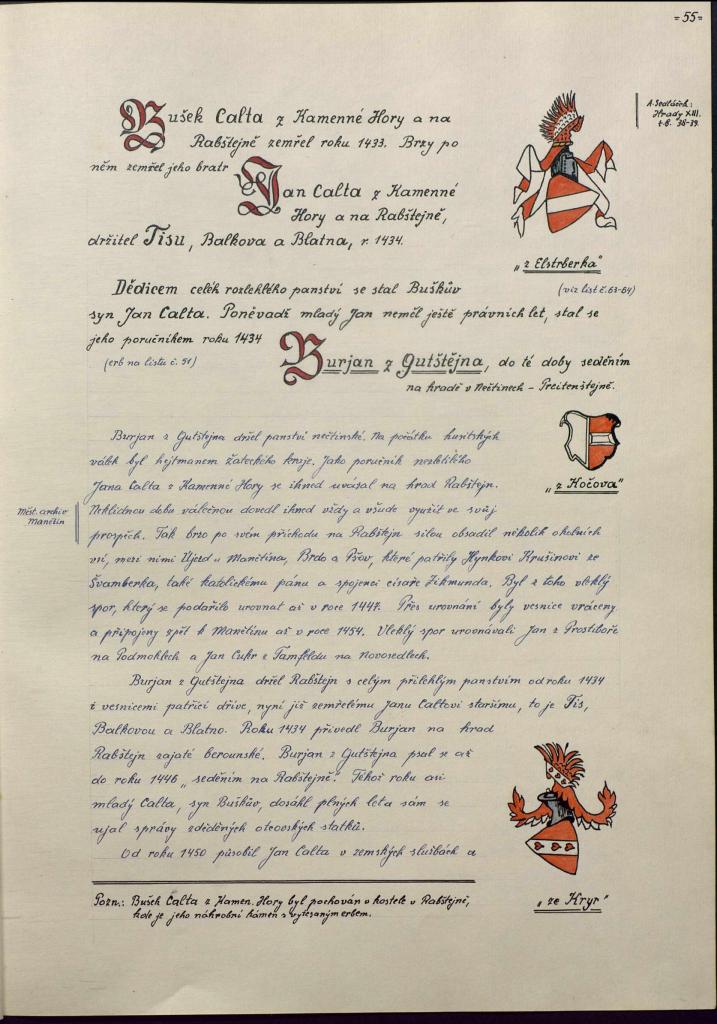 =55=
A. Sedláček:
Hrady XIII.
t.č. 38-39.
Bušek Calta z Kamenné Hory a na
Rabštejně zemřel roku 1433. Brzy po
něm zemřel jeho bratr
Jan Calta z Kamenné
Hory a na Rabštejně,
držitel Tisu, Balkova a Blatna, r. 1434.
„z Elstrberka"
(viz list č. 63-64)
Dědicem celék rozlehlého panství se stal Buškův
syn Jan Calta. Poněvadž mladý Jan neměl ještě právních let, stal se
jeho poručníkem roku 1434
(erb na listu č. 51)
Burjan z Gutštějna, do té doby seděním
na hradě v Nečtinech - Preitenštejně.
„z Kočova"
Burjan z Gutštejna držel panství nečtinské. Na počátku husitských
válek byl hejtmanem žateckého kraje. Jako poručník nezletilého
Jana Calta z Kamenné Hory se ihned uvázal na hrad Rabštejn.
Měst. archiv
Manětín
Neklidnou dobu válečnou dovedl ihned vždy a všude využít ve svůj
prospěch. Tak brzo po svém příchodu na Rabštejn silou obsadil několik okolních
vsí, mezi nimi Újezd u Manětína, Brdo a Pšov, které patřily Hynkovi Krušinovi ze
Švamberka, také katolickému pánu a spojenci císaře Zikmunda. Byl z toho vleklý
spor, který se podařilo urovnat až v roce 1447. Přes urovnání byly vesnice vráceny
a připojeny zpět k Manětínu až v roce 1454. Vleklý spor urovnávali Jan z Prostiboře
na Podmoklech a Jan Cukr z Tamfeldu na Novosedlech.
Burjan z Gutštejna držel Rabštejn s celým přilehlým panstvím od roku 1434
s vesnicemi patřící dříve, nyní již zemřelému Janu Caltovi staršímu, to je Tis,
Balkovou a Blatno. Roku 1434 přivedl Burjan na hrad
Rabštejn zajaté berounské. Burjan z Gutštejna psal se až
do roku 1446 „seděním na Rabštejně". Téhož roku asi
mladý Calta, syn Buškův, dosáhl plných let a sám se
ujal správy zděděných otcovských statků.
Od roku 1450 působil Jan Calta v zemských službách a
„ze Kryr"
Pozn.: Bušek Calta z Kamen. Hory byl pochován v kostele v Rabštejně,
kde je jeho náhrobní kámen s vytesaným erbem.